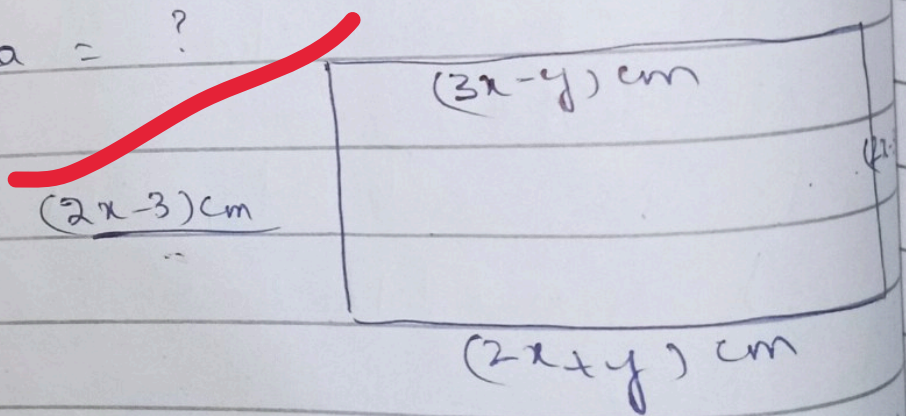 a = ?
(3x-y) cm
(2x-3) cm
(2x+y) cm